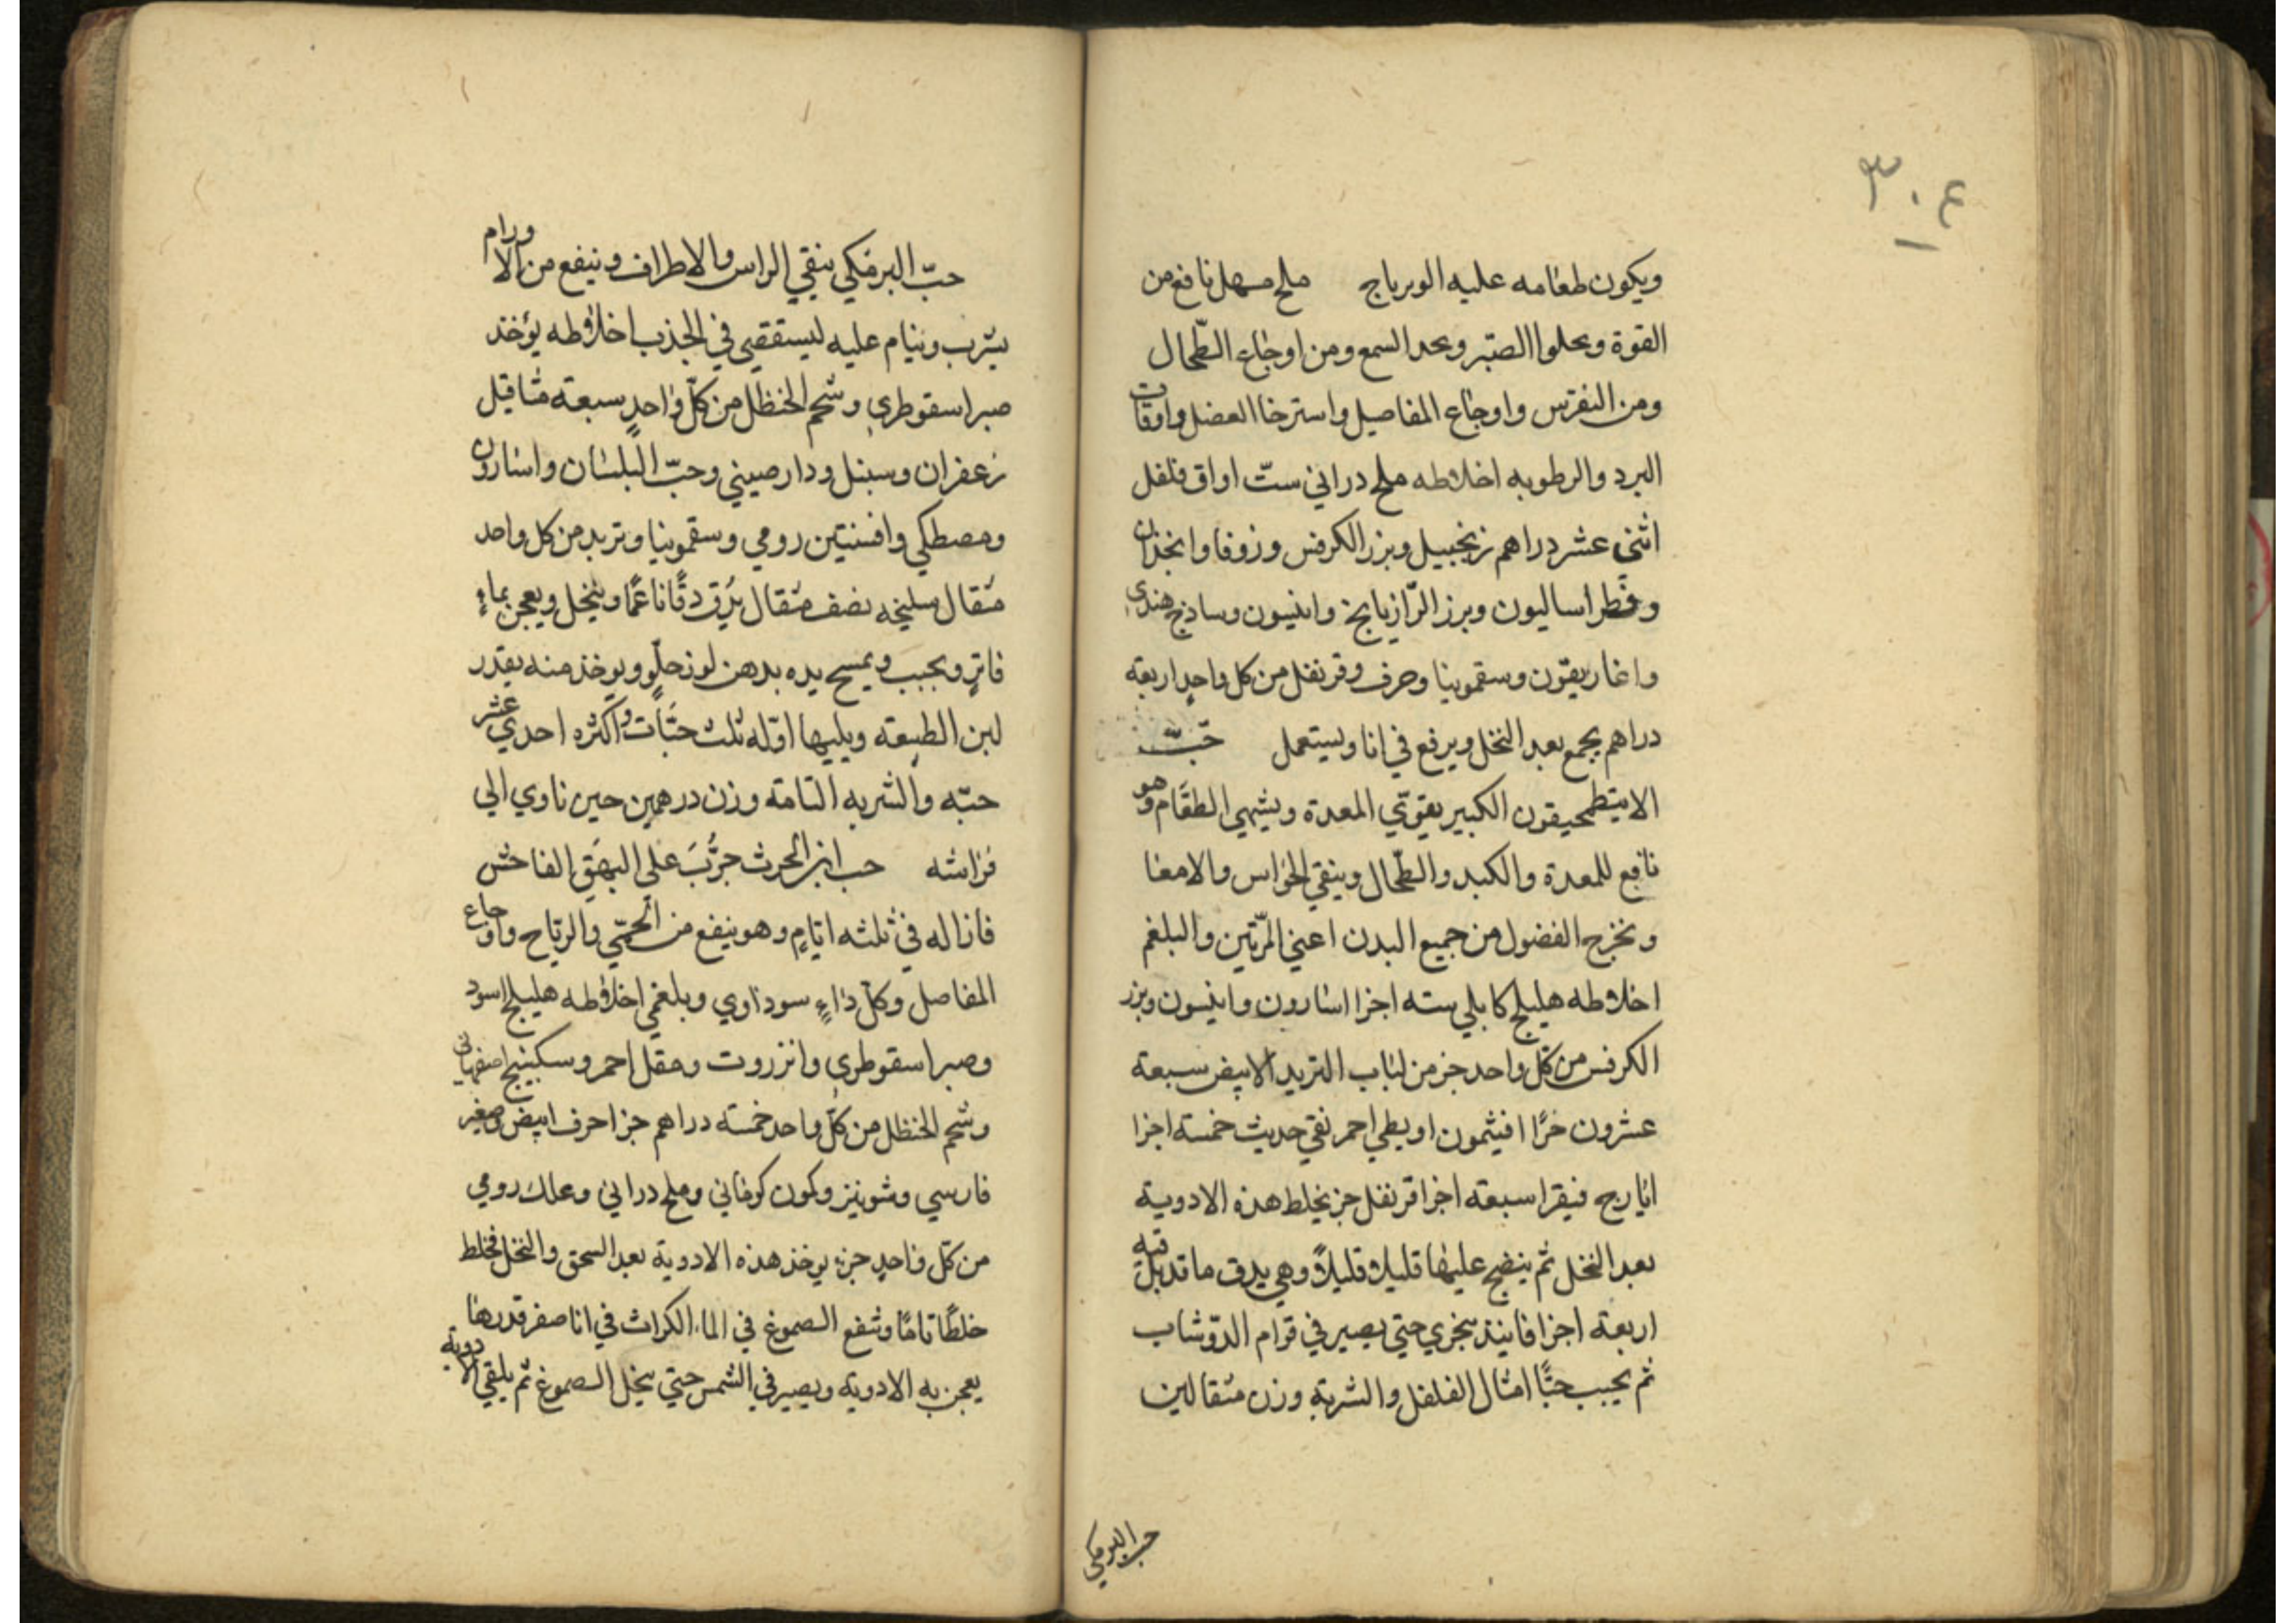 ٣٠٤
ويكون طعامه عليه الوبرباج ملح مسهل نافع من
القوة ويحلوا الصبر ويحد السمع ومن اوجاع الطّحال
ومن النقرس واوجاع المفاصيل واسترخا العضل واوقات
البرد والرطوبه اخلاطه ملح دراني ستّ اواق فلفل
اثنى عشر دراهم زنجبيل وبزر الكرفس وزوفا وانجذان
وفطراساليون وبرز الرّازيانج وانيسون وساذج هندي
واغاريقون وسقمونيا وحرف وقرنفل من كل واحدٍ اربعة
دراهم يجمع بعد النخل ويرفع في انا ويستعمل حَبّ
الاميتطمحيقون الكبير يقوّي المعدة ويشهي الطعام وهو
نافع للمعدة والكبد والطّحال وينقي الحواس والامعا
ونخرج الفضول من جميع البدن اعني المرّتين والبلغم
اخلاطه هليلج كابلي سته اجزا اسارون وانيسون وبزر
الكرفس من كلّ واحد جز من لباب التربد الابيض سبعة
عشرون جزًا افيثمون اويطي احمر نقي حديث خمسة اجزا
ايارج فيقرا سبعة اجزا قرنفل جز يخلط هذه الادوية
بعد النخل ثم ينضج عليها قليلا قليلاً وهي يدق ما قد بقيه
اربعة اجزا فانيند سجزي حتي يصير في قوام الدّوشاب
ثم يحبب حبًّا امثال الفلفل والشربة وزن مثقالين
حب البرمكي
حبّ البرمكي ينقي الراس والاطراف وينفع من الاورام
يشرب وينام عليه ليستقصي في الجذب اخلاطه يؤخذ
صبر اسقوطري وشحم الحنظل من كلّ واحدٍ سبعة مثاقيل
زعفران وسنبل ودارصيني وحبّ البلسان واسارون
ومصطكي وافسنتين رومي وسقمونيا وتربد من كل واحد
مثقال سليخه نصف مثقال يدق دقًّا ناعمًا وينخل ويعجن بماءٍ
فاترٍ ويحبب ويمسح يده بدهن لوز حلوٍ ويوخذ منه بقدر
لين الطبيعة ويليها اوّله ثلث حبّات واكثره احدي عشر
حبّه والشربه التامة وزن درهمين حين ناوي الي
فراشه حب ابن الحرث جرُّبَ على البهق الفاحش
فازاله في ثلثه ايّامٍ وهو ينفع من الحمّي والرياح واوجاع
المفاصل وكلّ داءٍ سوداوي وبلغمي اخلاطه هليلج اسود
وصبر اسقوطري وانزروت ومقل احمر وسكبينج اصفهاني
وشحم الحنظل من كلّ واحد خمسة دراهم جزا حرف ابيض وصغير
فارسي وشونيز وكمون كرماني وملح دراني وعلك رومي
من كلّ واحدٍ جزء يوخذ هذه الادوية بعد السحق والنخل فخلط
خلطًا تامًا وتنفع الصموغ في الماء الكراث في انا صفر قدر ما
يعجن به الادوية ويصير في الشمس حتي ينحل الصموغ ثم يلقي الادوية